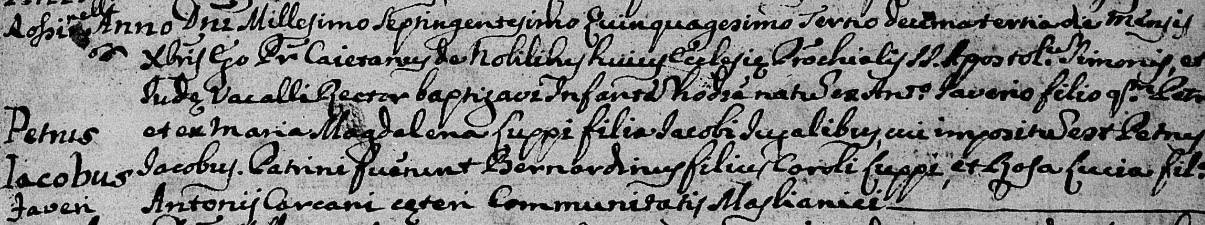 Rossinelli
Anno Dni Millesimo Septingentesimo Quinquagesimo Tertio die decima tertia mensis
Xbris Ego Pr Caietanus de Nobilibus huius Ecclesię Prochialis SS. Apostol. Simonis, et
Iudę Vacalli Rector baptizavi Infantē hodie natū ex Anto. Iaverio filio qm Petri
Petrus et ex Maria Magdalena Luppi filia Iacobi Iugalibus, cui impositū est Petrus
Iacobus Iacobus. Patrini fuerunt Bernardinus filius Caroli Luppi, et Rosa Lucia fila
Iaveri Antonij Carcani cęteri Communitatis Maslianici